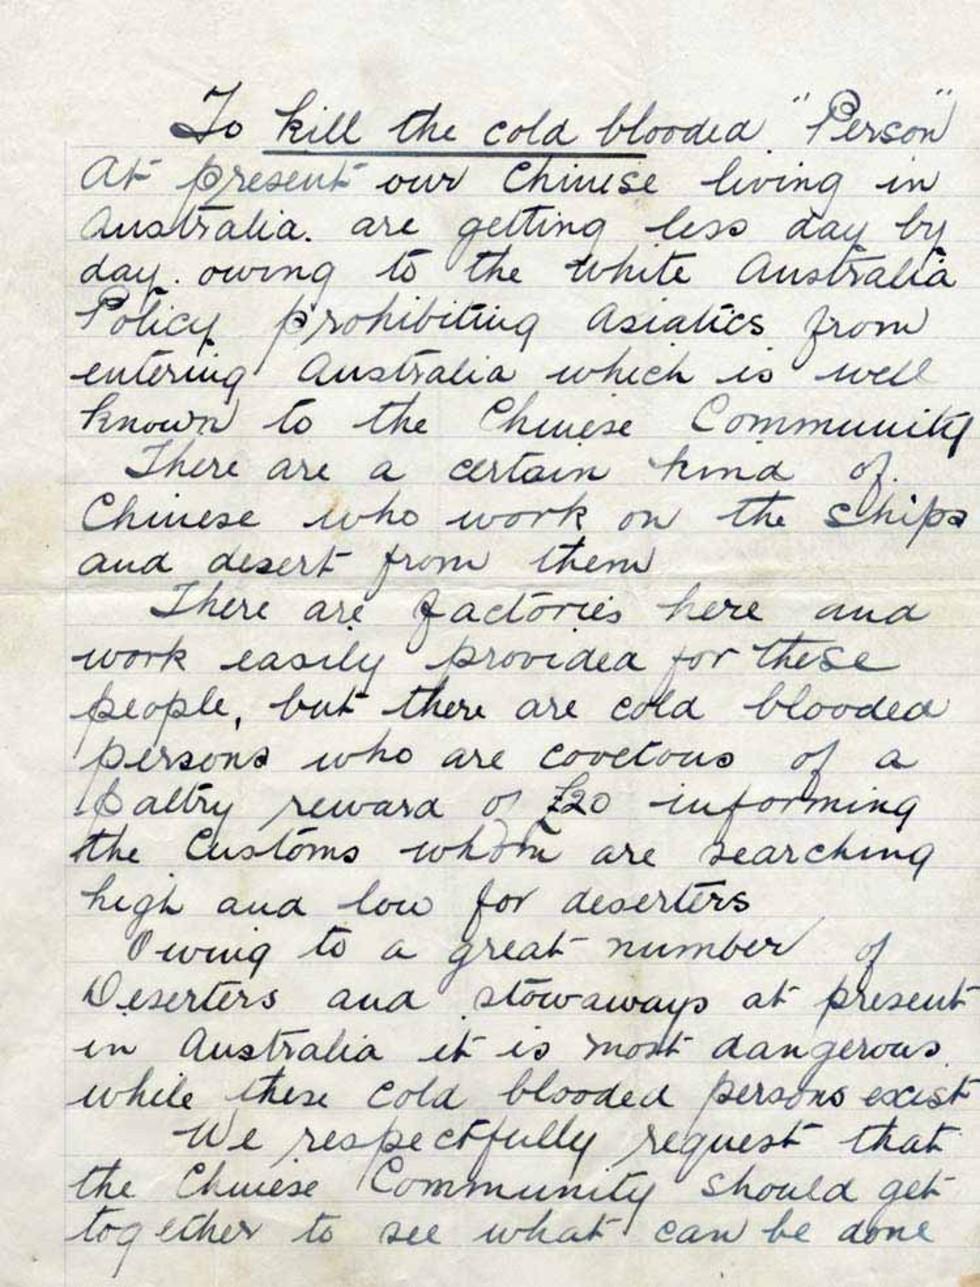 To kill the cold blooded "Person"
At present our Chinese living in
Australia. are getting less day by
day. owing to the White Australia
Policy prohibiting Asiatics from
entering Australia which is well
known to the Chinese Community
There are a certain kind of
Chinese who work on the ships
and desert from them
There are factories here and
work easily provided for these
people, but there are cold blooded
persons who are covetous of a
paltry reward of £20 informing
the Customs whom are searching
high and low for deserters
Owing to a great number of
Deserters and stowaways at present
in Australia it is most dangerous
while these cold blooded persons exist
We respectfully request that
the Chinese Community should get
together to see what can be done